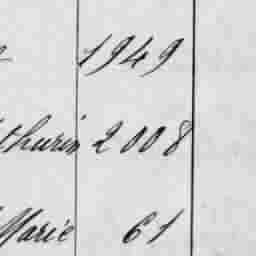 1949
thurin 2008
Marie 61